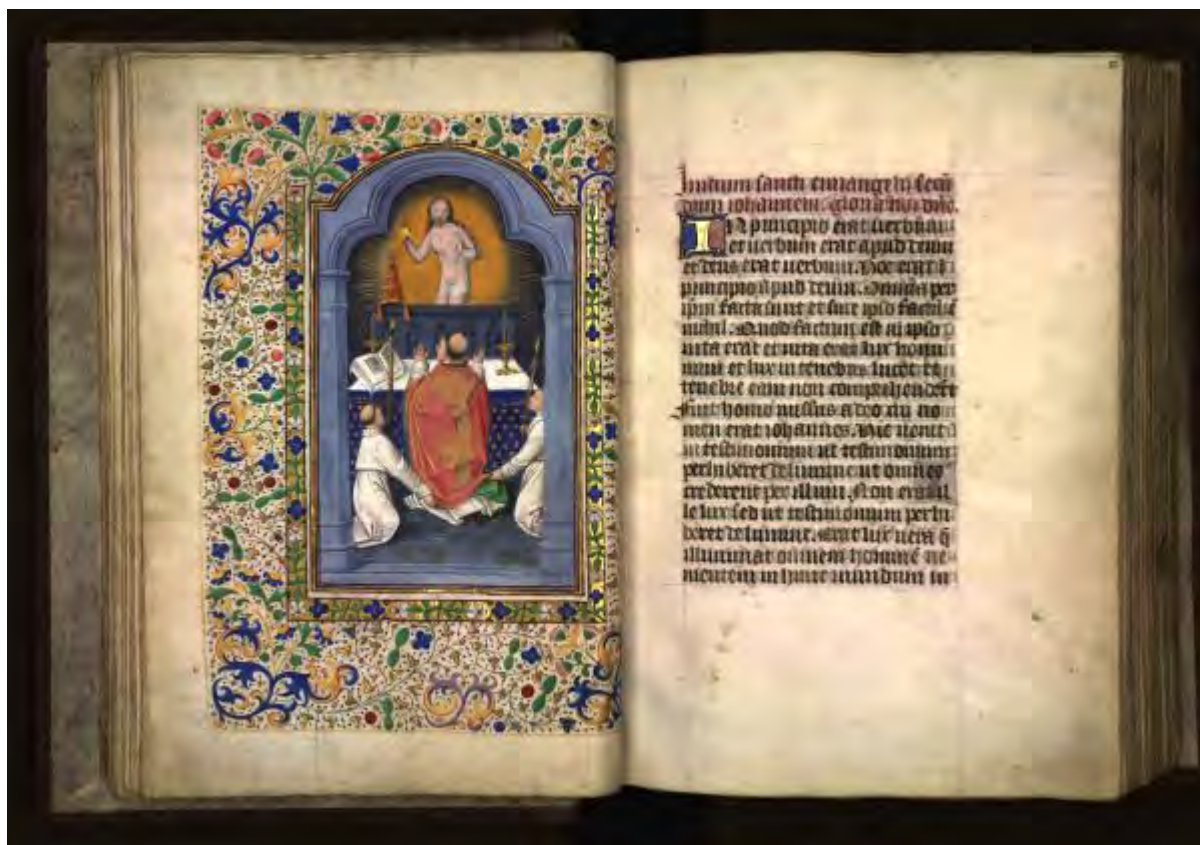 Inicium sancti euuangelii secū
dum iohannem. gloria tibi dñe.
IN principio erat uerbum
et uerbum erat apud deum
et deus erat uerbum. Hoc erat i
principio apud deum. Omnia per
ipm facta sunt et sine ipso factū ē
nihil. Quod factum est in ipso
uita erat et uita erat lux homi
num et lux in tenebris lucet et
tenebre eam non comprehenderūt
Fuit homo missus a deo cui no
men erat iohannes. Hic uenit
in testimonium ut testimonium
perhiberet de lumine ut omnes
crederent per illum. Non erat il
le lux sed ut testimonium perhi
beret de lumine. Erat lux uera q̄
illuminat omnem hominē ue
nientem in hunc mundum in